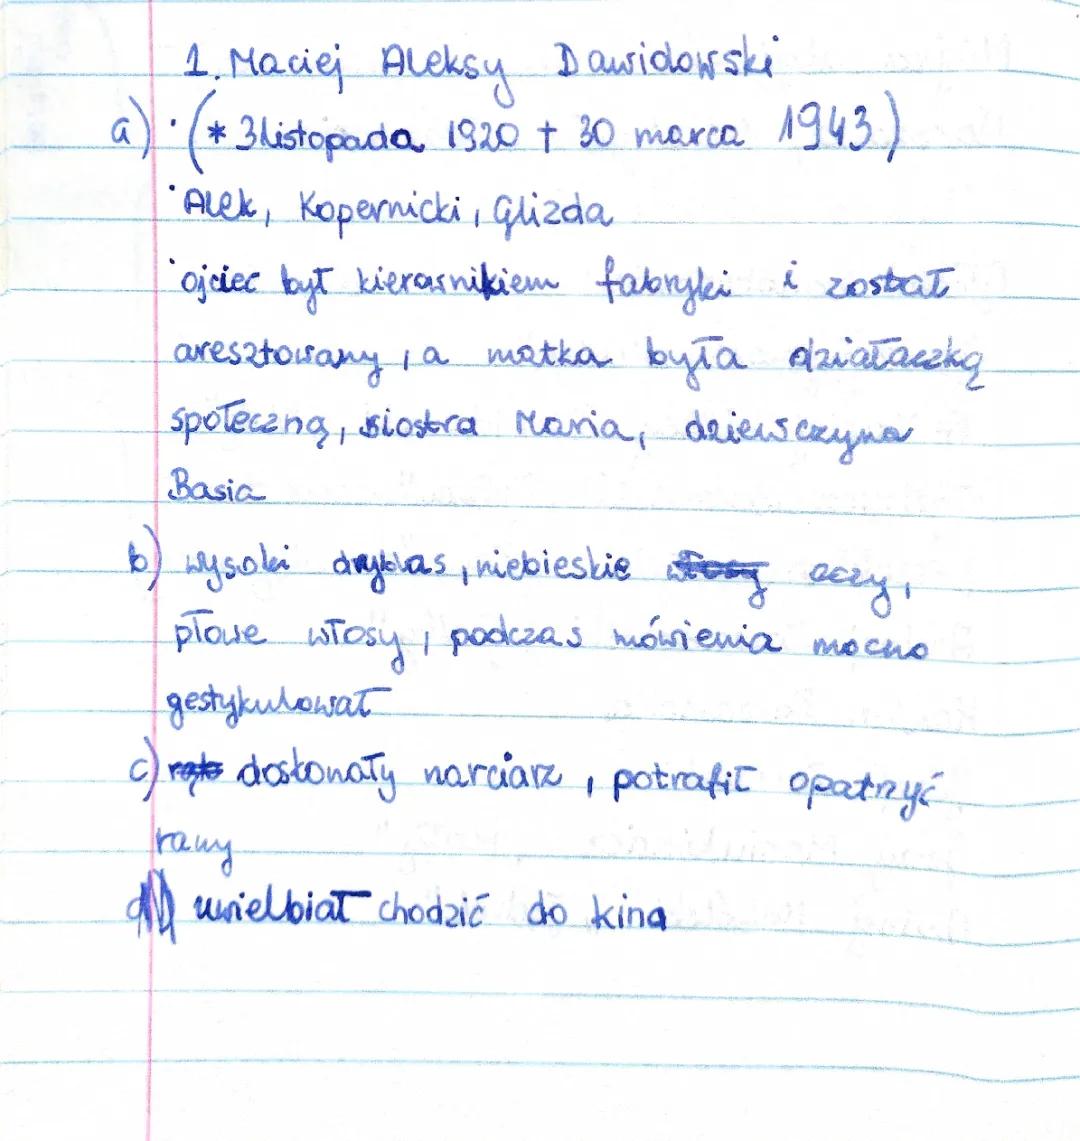 1. Maciej Aleksy Dawidowski
a) · (* 3 listopada 1920 † 30 marca 1943)
· Alek, Kopernicki, Glizda
· ojciec był kierownikiem fabryki i został
aresztowany, a matka była działaczką
społeczną, siostra Maria, dziewczyna
Basia
b) wysoki dryblas, niebieskie oczy,
płowe włosy, podczas mówienia mocno
gestykulował
c) doskonały narciarz, potrafił opatrzyć
rany
d) uwielbiał chodzić do kina